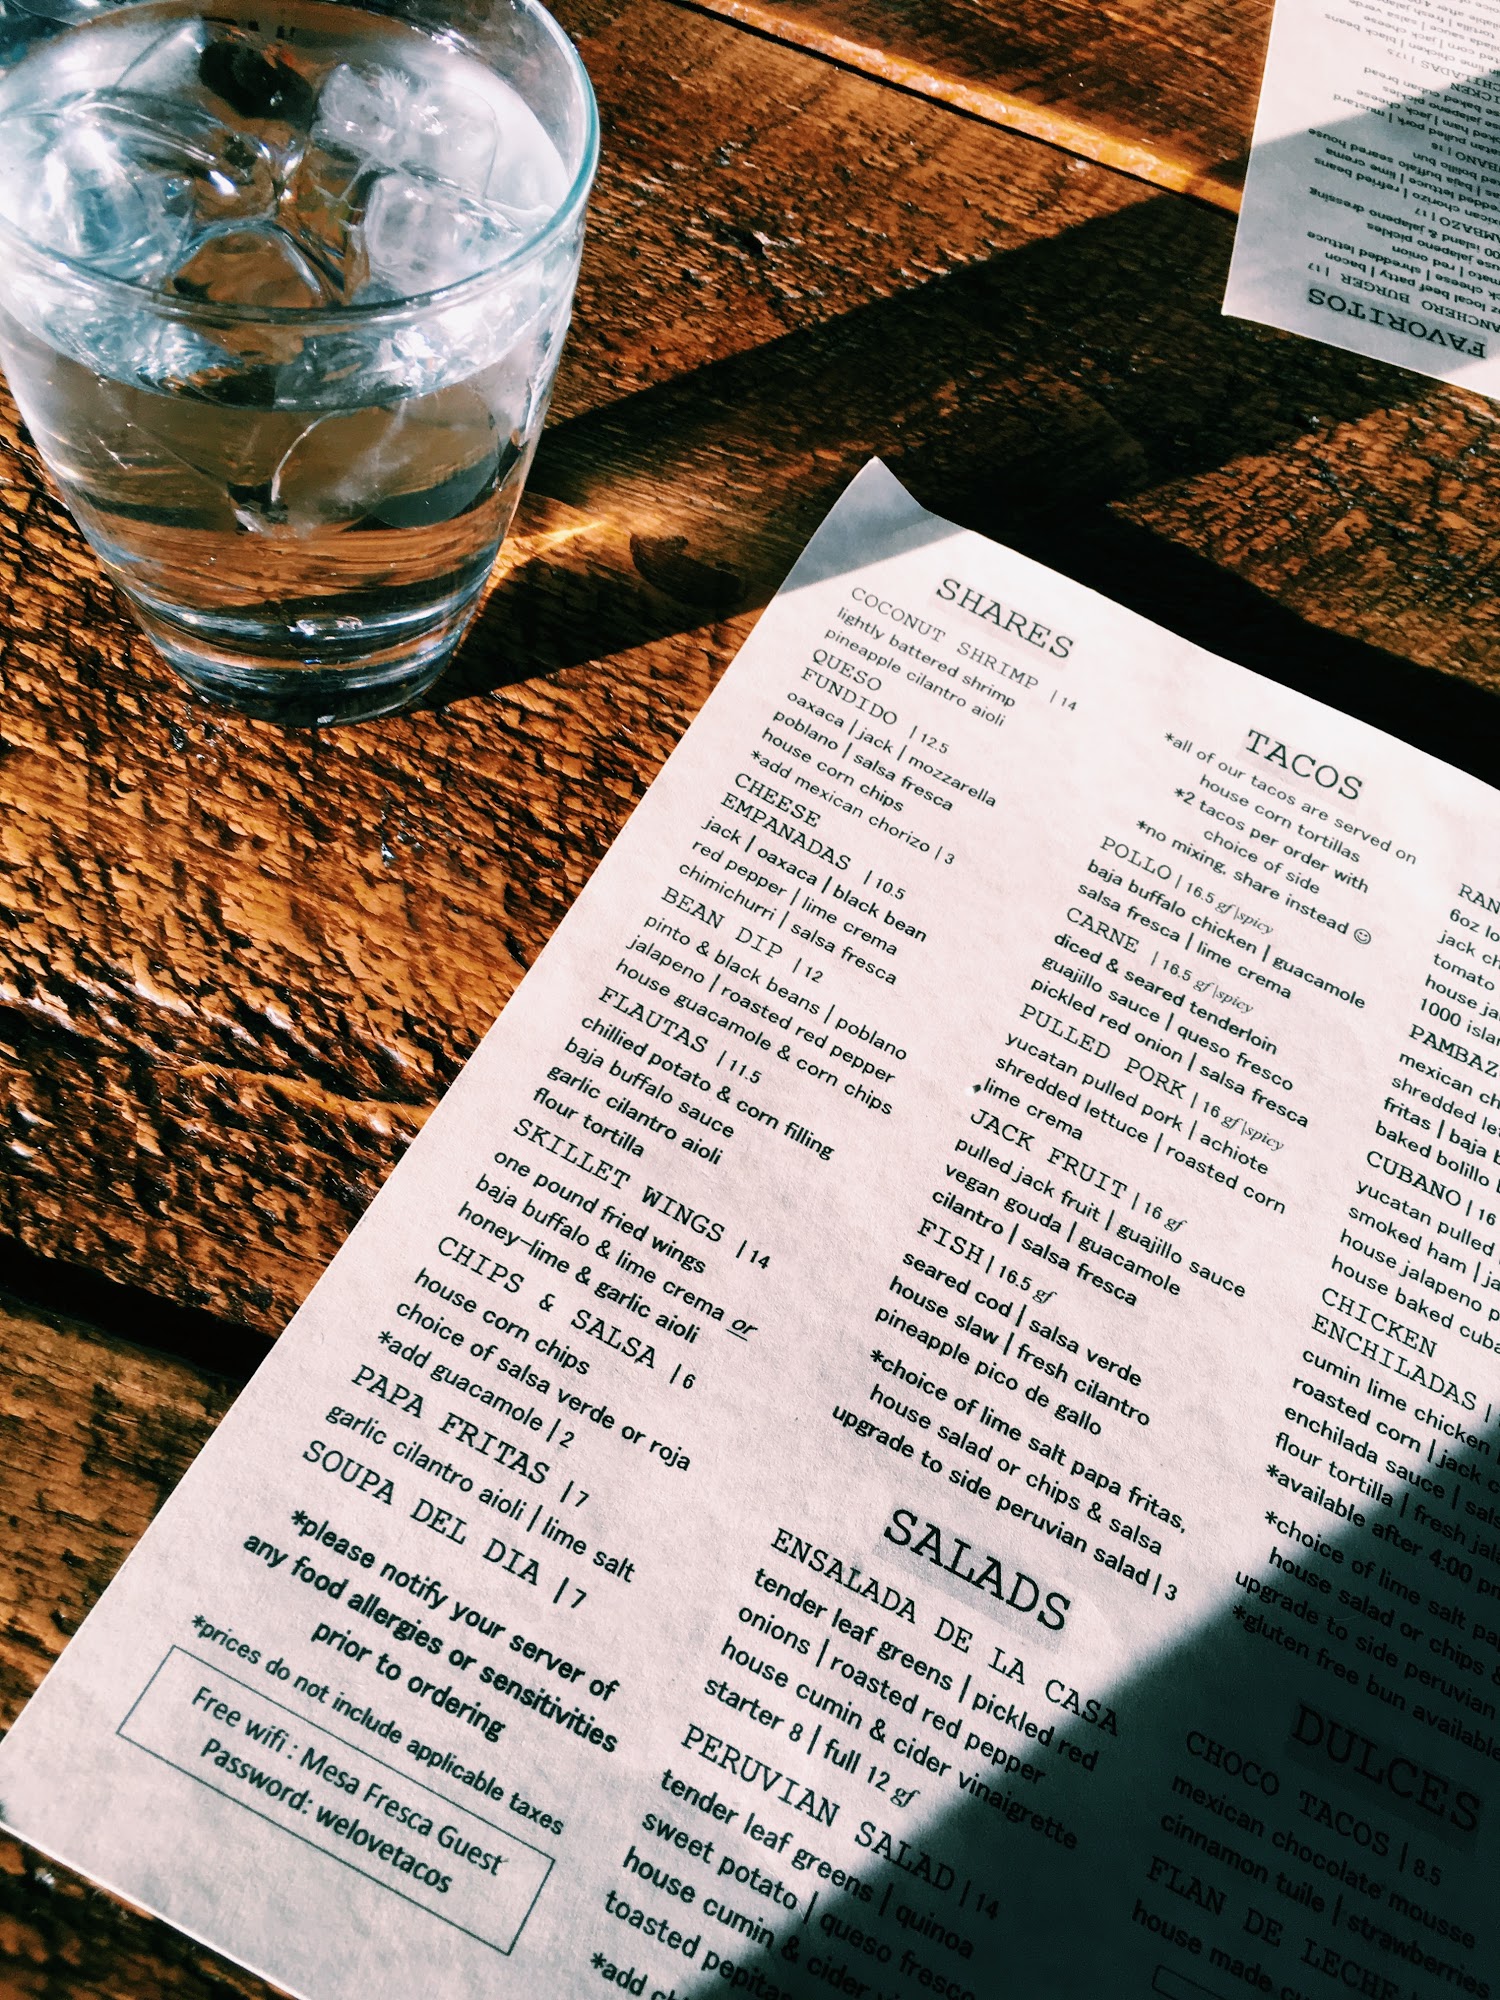 SHARES
COCONUT SHRIMP | 14
lightly battered shrimp
pineapple cilantro aioli
QUESO
FUNDIDO | 12.5
oaxaca | jack | mozzarella
poblano | salsa fresca
house corn chips
*add mexican chorizo | 3
CHEESE
EMPANADAS | 10.5
jack | oaxaca | black bean
red pepper | lime crema
chimichurri | salsa fresca
BEAN DIP | 12
pinto & black beans | poblano
jalapeno | roasted red pepper
house guacamole & corn chips
FLAUTAS | 11.5
chillied potato & corn filling
baja buffalo sauce
garlic cilantro aioli
flour tortilla
SKILLET WINGS | 14
one pound fried wings
baja buffalo & lime crema or
honey-lime & garlic aioli
CHIPS & SALSA | 6
house corn chips
choice of salsa verde or roja
*add guacamole | 2
PAPA FRITAS | 7
garlic cilantro aioli | lime salt
SOUPA DEL DIA | 7
*please notify your server of
any food allergies or sensitivities
prior to ordering
*prices do not include applicable taxes
Free wifi : Mesa Fresca Guest
Password: welovetacos
TACOS
*all of our tacos are served on
house corn tortillas
*2 tacos per order with
choice of side
*no mixing, share instead ☺
POLLO | 16.5 gf |spicy
baja buffalo chicken | guacamole
salsa fresca | lime crema
CARNE | 16.5 gf |spicy
diced & seared tenderloin
guajillo sauce | queso fresco
pickled red onion | salsa fresca
PULLED PORK | 16 gf |spicy
yucatan pulled pork | achiote
shredded lettuce | roasted corn
lime crema
JACK FRUIT | 16 gf
pulled jack fruit | guajillo sauce
vegan gouda | guacamole
cilantro | salsa fresca
FISH | 16.5 gf
seared cod | salsa verde
house slaw | fresh cilantro
pineapple pico de gallo
*choice of lime salt papa fritas,
house salad or chips & salsa
upgrade to side peruvian salad | 3
SALADS
ENSALADA DE LA CASA
tender leaf greens | pickled red
onions | roasted red pepper
house cumin & cider vinaigrette
starter 8 | full 12 gf
PERUVIAN SALAD | 14
tender leaf greens | quinoa
sweet potato | queso fresco
house cumin & cider
toasted
*add
6oz
tomato
house
1000
mexican
shredded
fritas | baja
baked bolillo
CUBANO | 16
yucatan pulled
smoked ham |
house jalapeno
house baked
CHICKEN
ENCHILADAS |
cumin lime chicken
roasted corn | jack
enchilada sauce |
flour tortilla | fresh
*available after 4:00
*choice of lime salt
house salad or chips
upgrade to side peruvian
*gluten free bun available
DULCES
CHOCO TACOS | 8.5
mexican chocolate mousse
cinnamon tuile | strawberries
FLAN DE LECHE
house made
FAVORITOS
BURGER | 17
local beef patty | bacon
cheese | shredded lettuce
red onion
jalapeno pickles
island & jalapeno dressing
| 17
chorizo | refried beans
lettuce | lime crema
| baja buffalo seared house
bolillo bun
| 16
pulled pork | mustard
ham | jack cheese
jalapeno pickles
baked cuban bread
| 17.5
lime chicken | black beans
corn | jack cheese